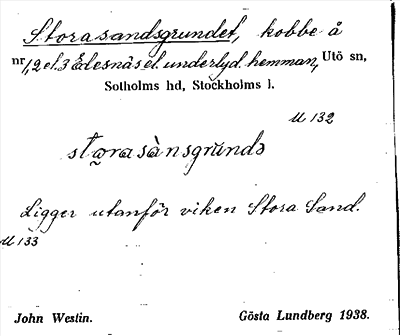 Stora sandsgrundet, kobbe å
nr 1, 2 el. 3 Edesnäs el. underlyd. hemman, Utö sn,
Sotholms hd, Stockholms l.
U 132
stωrasànsgrúndə
Ligger utanför viken Stora Sand.
U 133
John Westin. Gösta Lundberg 1938.